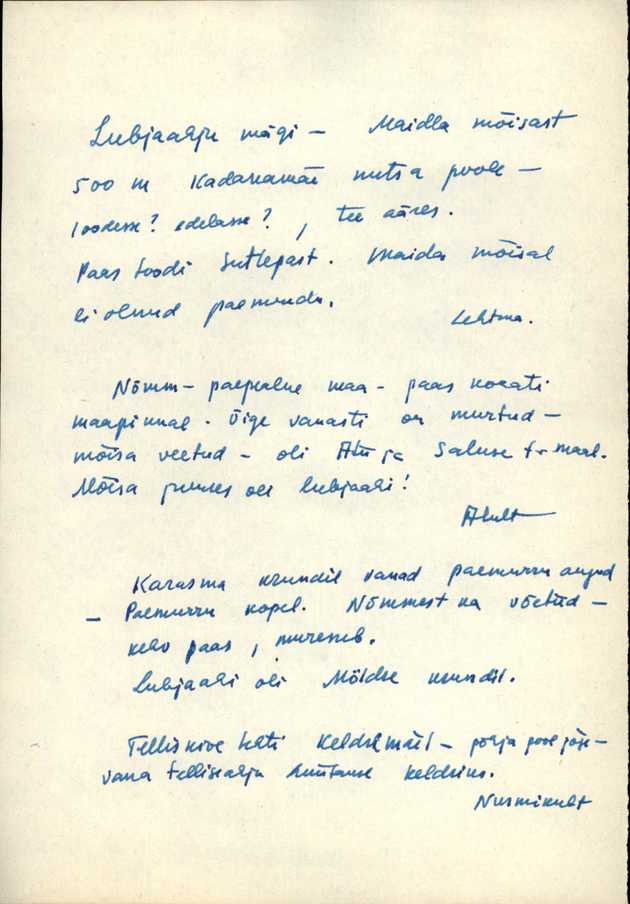 Lubjaahju mägi – Maidla mõisast
500 m Kadakamäe metsa poole –
loodesse? edelasse?, tee ääres.
Paas toodi Sutlepast. Maidla mõisal
ei olnud paemurdu.
Lehtma.
Nõmm – paepealne maa – paas kooriti
maapinnal. Õige vanasti on murtud –
mõisa veetud – oli Atu ja Saluse t. maal.
Mõisa juures oli lubjaahi!
Karasma krundil vanad paemurru augud
– Paemurru kopel. Nõmmest ka võetud –
kehv paas, mureneb.
Lubjaahi oli Möldre krundil.
Telliskive tehti Keldrimäel – põhja pool jõge –
vana tellisahju hüütakse keldriks.
Nurmikult